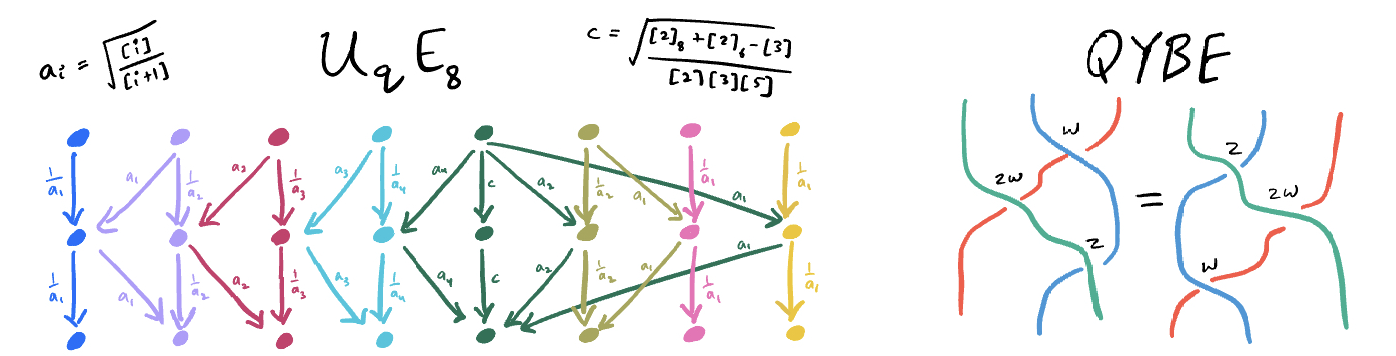 aᵢ = √([i]/[i+1])
U_q E₈
c = √(([2]₈+[2]₆-[3])/([2][3][5]))
1/a₁ a₁ 1/a₂ a₂ 1/a₃ a₃ 1/a₄ a₄ c a₂ 1/a₂ a₁ 1/a₁ a₁ 1/a₁
1/a₁ a₁ 1/a₂ a₂ 1/a₃ a₃ 1/a₄ a₄ c a₂ 1/a₂ a₁ 1/a₁ a₁ 1/a₁
QYBE
w
zw
z
=
z
zw
w